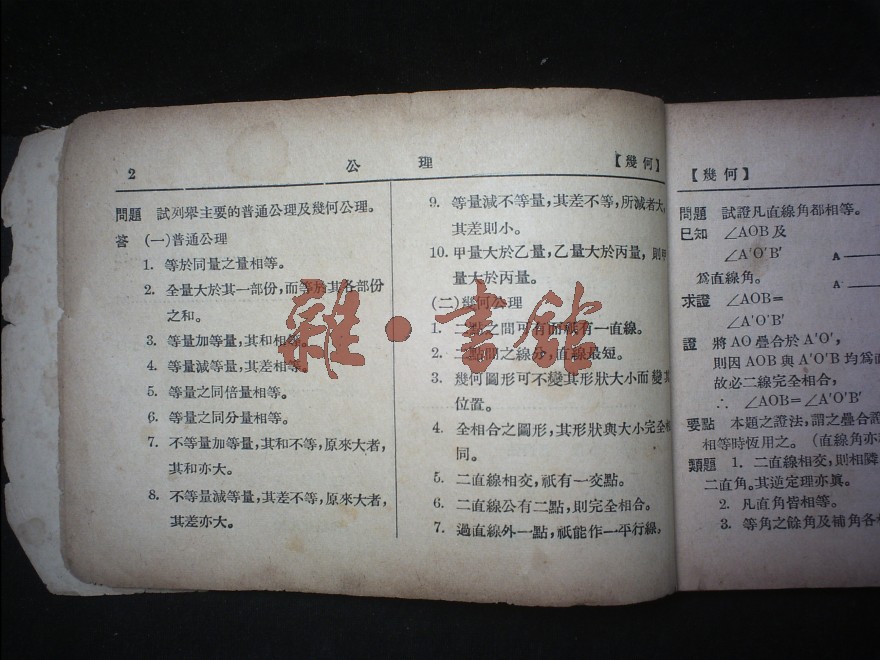 2 公理 【幾何】
問題 試列舉主要的普通公理及幾何公理。
答 (一)普通公理
1. 等於同量之量相等。
2. 全量大於其一部份,而等於其各部份
之和。
3. 等量加等量,其和相等。
4. 等量減等量,其差相等。
5. 等量之同倍量相等。
6. 等量之同分量相等。
7. 不等量加等量,其和不等,原來大者,
其和亦大。
8. 不等量減等量,其差不等,原來大者,
其差亦大。
9. 等量減不等量,其差不等,所減者大,
其差則小。
10. 甲量大於乙量,乙量大於丙量,則甲
量大於丙量。
(二)幾何公理
1. 二點之間可有而祇有一直線。
2. 二點間之線分,直線最短。
3. 幾何圖形可不變其形狀大小而變其
位置。
4. 全相合之圖形,其形狀與大小完全相
同。
5. 二直線相交,祇有一交點。
6. 二直線公有二點,則完全相合。
7. 過直線外一點,祇能作一平行線。
雜·書館
【幾何】
問題 試證凡直線角都相等。
已知 ∠AOB及
∠A'O'B' A
爲直線角。 A'
求證 ∠AOB=
∠A'O'B'
證 將AO疊合於A'O',
則因AOB與A'O'B均爲
故必二線完全相合,
∴ ∠AOB=∠A'O'B'
要點 本題之證法,謂之疊合
相等時恆用之。(直線角亦
類題 1. 二直線相交,則相隣
二直角。其逆定理亦眞。
2. 凡直角皆相等。
3. 等角之餘角及補角各